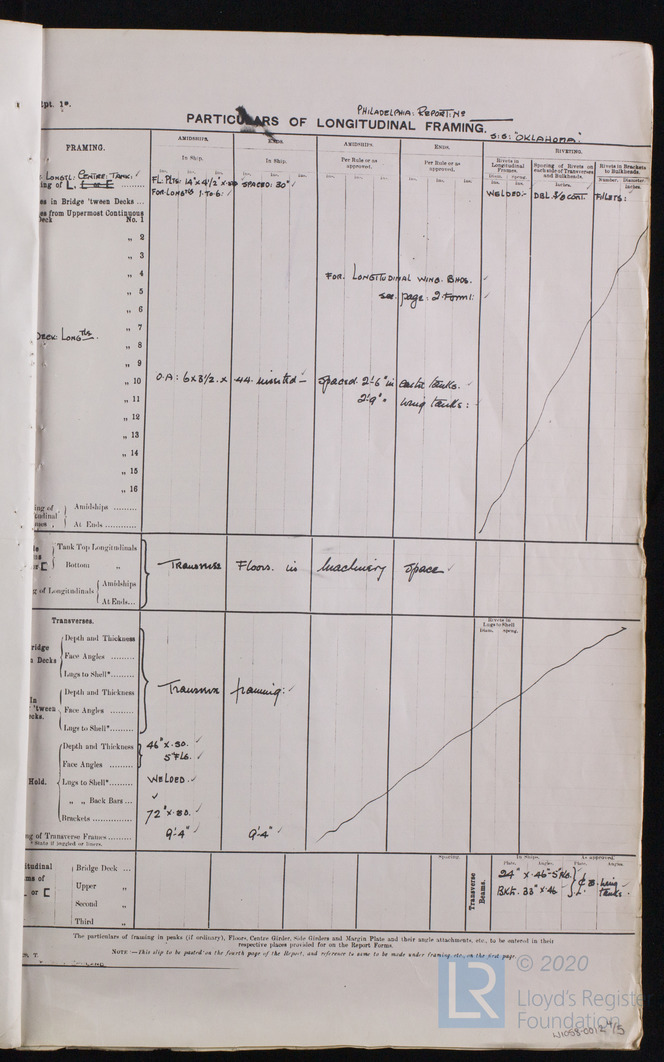 Rpt. 1*.
PHILADELPHIA: REPORT Nº
PARTICULARS OF LONGITUDINAL FRAMING.
S.S: "OKLAHOMA"
FRAMING.
AMIDSHIPS.
ENDS.
AMIDSHIPS.
ENDS.
RIVETING.
In Ship.
In Ship.
Per Rule or as approved.
Per Rule or as approved.
Rivets in Longitudinal Frames.
Spacing of Rivets on each side of Transverses and Bulkheads.
Rivets in Brackets to Bulkheads.
Diam. spcng.
Inches.
Number. Diameter
LONGTL: CENTRE TANK. ✓
ing of L, [ or E
FL. PLTS: 14" x 4½" x SPACED: 30" ✓
FOR LONGLS 1 TO 6: ✓
WELDED:- DBL. CONT. FILLETS:
es in Bridge 'tween Decks ...
es from Uppermost Continuous
Deck No. 1
„ 2
„ 3
„ 4
FOR LONGITUDINAL WING. BHDS. ✓
„ 5
see page: 2 Form 1: ✓
„ 6
„ 7
DECK LONGTLS.
„ 8
„ 9
„ 10
O.A: 6 x 3½ x .44 inverted - spaced 2'-6" in centre tanks. ✓
„ 11
2'-9" " wing tanks: ✓
„ 12
„ 13
„ 14
„ 15
„ 16
ing of
tudinal
mes ,
Amidships .........
At Ends ............
Tank Top Longitudinals
Bottom „
TRANSVERSE Floors in Machinery Space ✓
g of Longitudinals
Amidships
At Ends...
Transverses.
Rivets in Lugs to Shell
Diam. spcng.
ridge
n Decks
Depth and Thickness
Face Angles .........
Lugs to Shell*.........
In
'tween
ecks.
Depth and Thickness
Transverse framing: ✓
Face Angles .........
Lugs to Shell*.........
Hold.
Depth and Thickness
46" x .50. ✓
Face Angles .........
5" FLG. ✓
Lugs to Shell*.........
WELDED. ✓
„ „ Back Bars ...
✓
Brackets ...............
72" x .50. ✓
ng of Transverse Frames .........
9'-4" ✓ 9'-4" ✓
* State if joggled or liners.
Spacing.
In Ships.
As approved.
Plate. Angles. Plate. Angles.
itudinal
ms of
or [
Bridge Deck ...
Upper „
Second „
Third „
Transverse Beams.
24" x .46 - 5" FLG.
BKT. 33" x .46
wing tanks.
The particulars of framing in peaks (if ordinary), Floors, Centre Girder, Side Girders and Margin Plate and their angle attachments, etc., to be entered in their
respective places provided for on the Report Forms.
NOTE :—This slip to be pasted on the fourth page of the Report, and reference to same to be made under framing, etc., on the first page.
© 2020
LR
Lloyd's Register
Foundation
W1058-0012 4/5